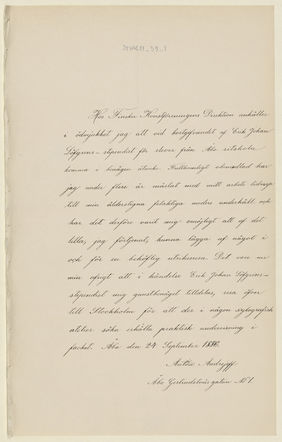 Hos Finska Konstföreningens Direktion anhåller
i ödmjukhet jag att vid bortgifvandet af Erik Johan
Löfgrens-stipendiet för elever från Åbo ritskola
komma i benägen åtanke. Fullkomligt obemedlad har
jag under flere år måstat med mitt arbete bidraga
till min ålderstigna faders underhåll och
har det derför varit mig omöjligt att af det
lilla, jag förtjenat, kunna lägga af något i
och för en behöflig utrikesresa. Det vore nu
min afsigt att i händelse Erik Johan Löfgrens-
stipendiet mig gunstbenäget tilldelas, resa öfver
till Stockholm för att der i någon xylografisk
atelier söka erhålla praktisk undervisning i
facket. Åbo den 24 September 1886.
Åbo Gertrudsbrogatan № 1.